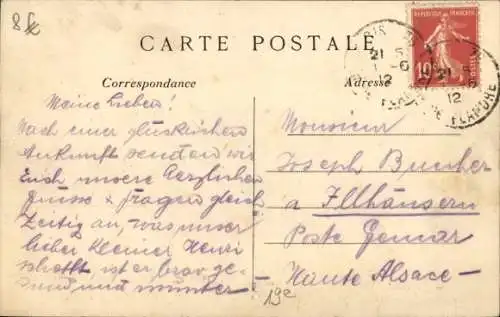 8 fr
CARTE POSTALE
Correspondance
Adresse
REPUBLIQUE FRANÇAISE
10
POSTES
21
12
21
12
Meine Lieben!
Nach einer glücklichen
Ankunft senden wir
Euch unsere herzlichen
Grüsse & fragen gleich
Zeitig an, was unser
lieber kleiner Henri
schafft, ist er brav ge-
sund und munter
Monsieur
Joseph Bucher
a Illhäusern
Poste Gemar
- Haute Alsace -
19e